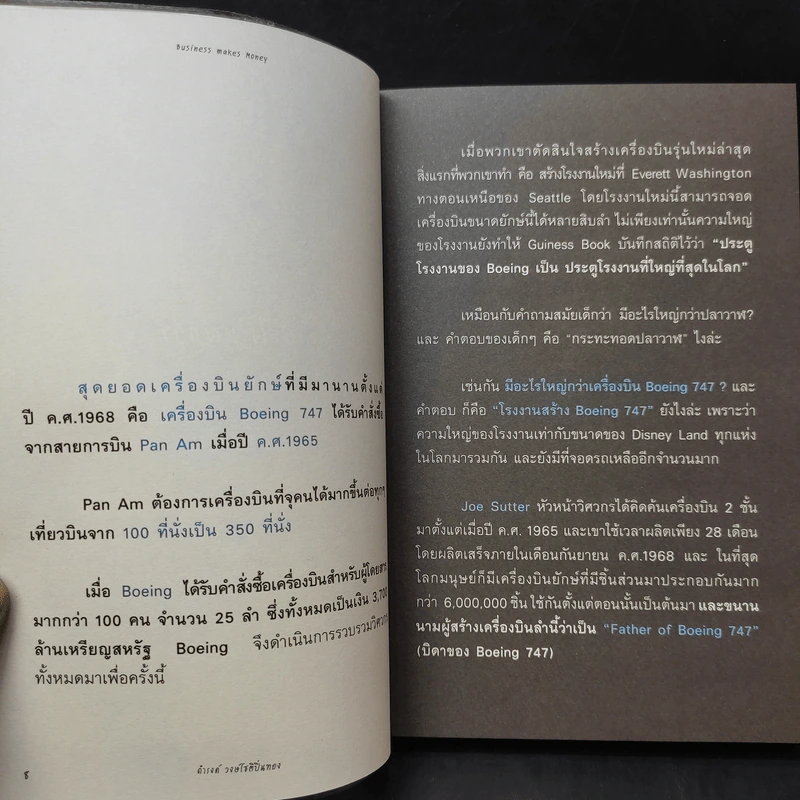 Business makes Money
สุดยอดเครื่องบินยักษ์ที่มีมานานตั้งแต่
ปี ค.ศ.1968 คือ เครื่องบิน Boeing 747 ได้รับคำสั่งซื้อ
จากสายการบิน Pan Am เมื่อปี ค.ศ.1965
Pan Am ต้องการเครื่องบินที่จุคนได้มากขึ้นต่อทุกๆ
เที่ยวบินจาก 100 ที่นั่งเป็น 350 ที่นั่ง
เมื่อ Boeing ได้รับคำสั่งซื้อเครื่องบินสำหรับผู้โดยสาร
มากกว่า 100 คน จำนวน 25 ลำ ซึ่งทั้งหมดเป็นเงิน 3,700
ล้านเหรียญสหรัฐ Boeing จึงดำเนินการรวบรวมวิศวกร
ทั้งหมดมาเพื่อครั้งนี้
8
ดำรงค์ วงษ์โชติปิ่นทอง
เมื่อพวกเขาตัดสินใจสร้างเครื่องบินรุ่นใหม่ล่าสุด
สิ่งแรกที่พวกเขาทำ คือ สร้างโรงงานใหม่ที่ Everett Washington
ทางตอนเหนือของ Seattle โดยโรงงานใหม่นี้สามารถจอด
เครื่องบินขนาดยักษ์นี้ได้หลายสิบลำ ไม่เพียงเท่านั้นความใหญ่
ของโรงงานยังทำให้ Guiness Book บันทึกสถิติไว้ว่า “ประตู
โรงงานของ Boeing เป็น ประตูโรงงานที่ใหญ่ที่สุดในโลก”
เหมือนกับคำถามสมัยเด็กว่า มีอะไรใหญ่กว่าปลาวาฬ?
และ คำตอบของเด็กๆ คือ “กระทะทอดปลาวาฬ” ไงล่ะ
เช่นกัน มีอะไรใหญ่กว่าเครื่องบิน Boeing 747 ? และ
คำตอบ ก็คือ “โรงงานสร้าง Boeing 747” ยังไงล่ะ เพราะว่า
ความใหญ่ของโรงงานเท่ากับขนาดของ Disney Land ทุกแห่ง
ในโลกมารวมกัน และยังมีที่จอดรถเหลืออีกจำนวนมาก
Joe Sutter หัวหน้าวิศวกรได้คิดค้นเครื่องบิน 2 ชั้น
มาตั้งแต่เมื่อปี ค.ศ. 1965 และเขาใช้เวลาผลิตเพียง 28 เดือน
โดยผลิตเสร็จภายในเดือนกันยายน ค.ศ.1968 และ ในที่สุด
โลกมนุษย์ก็มีเครื่องบินยักษ์ที่มีชิ้นส่วนมาประกอบกันมาก
กว่า 6,000,000 ชิ้น ใช้กันตั้งแต่ตอนนั้นเป็นต้นมา และขนาน
นามผู้สร้างเครื่องบินลำนี้ว่าเป็น “Father of Boeing 747”
(บิดาของ Boeing 747)